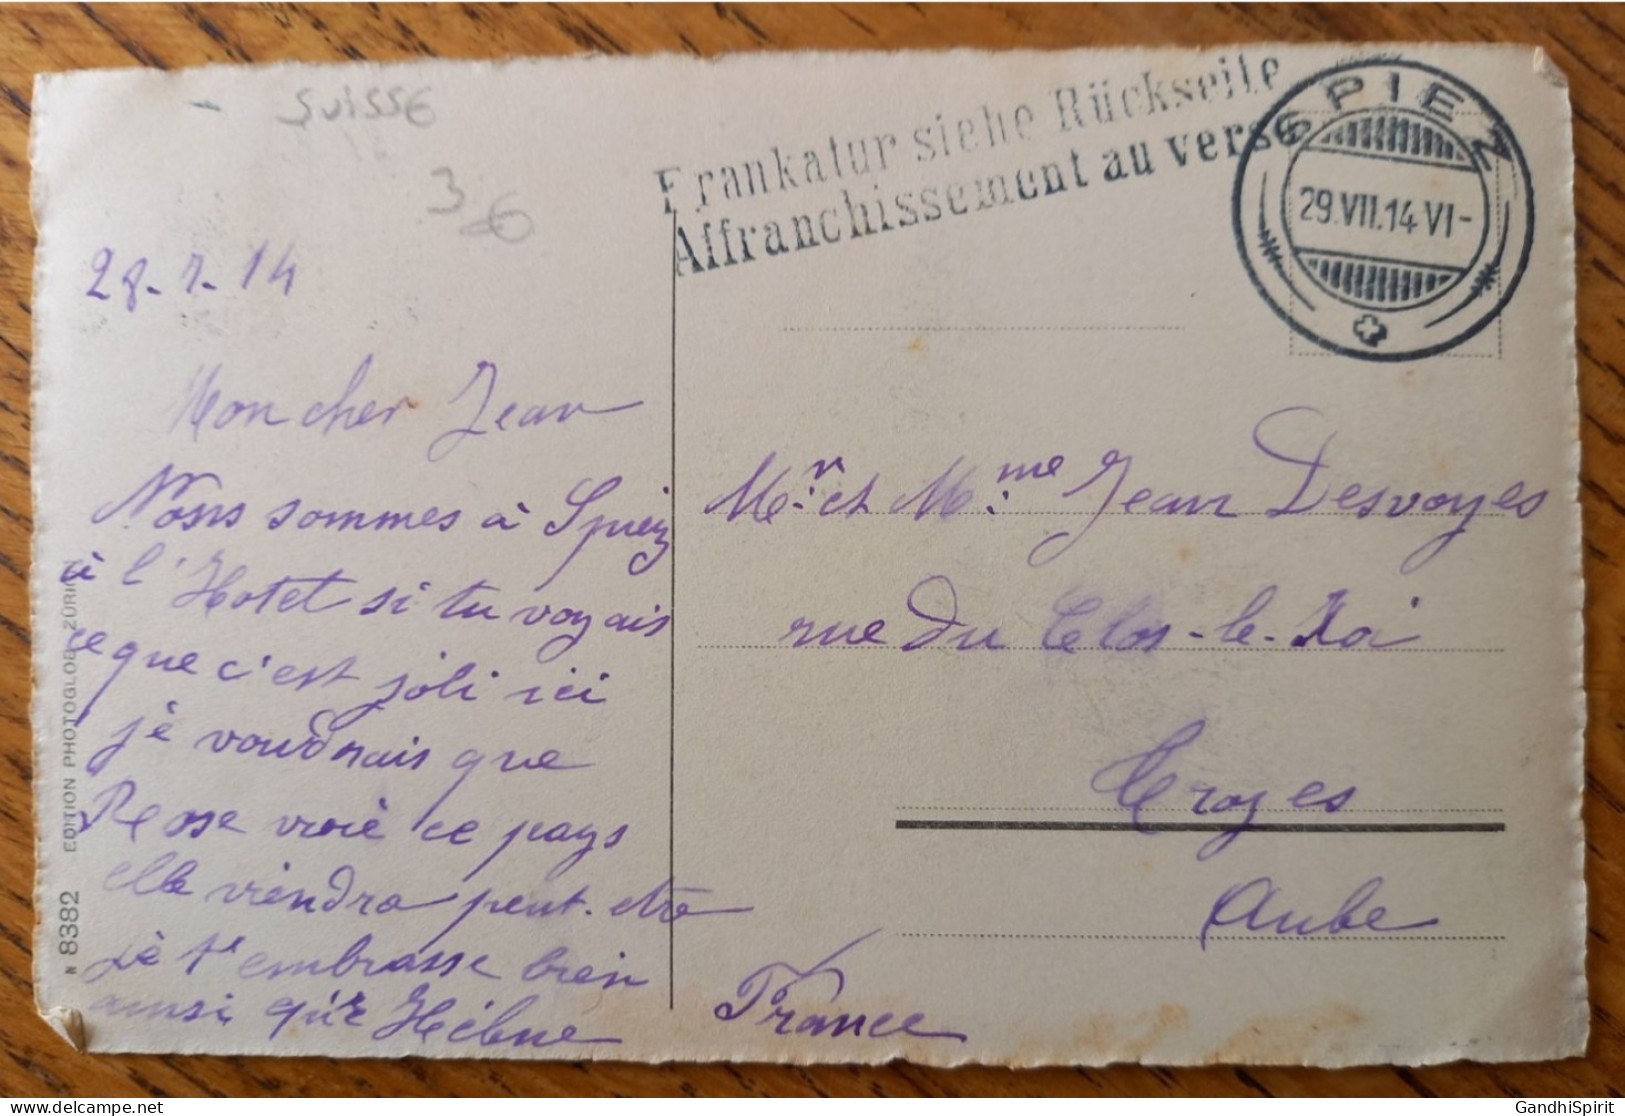 SUISSE
36
Frankatur siehe Rückseite
Affranchissement au verso
SPIEZ
29.VII.14 VI-
28.7.14
Mon cher Jean
Nous sommes à Spiez
à l'Hotel si tu voyais
ce que c'est joli ici
je voudrais que
Rose voie ce pays
elle viendra peut-etre
je t'embrasse bien
ainsi qu'Hélène
Mr. et Mme. Jean Desvoyes
rue du Clos-le-Roi
Troyes
Aube
France
N 8382 EDITION PHOTOGLOB ZÜRICH
delcampe.net
GandhiSpirit